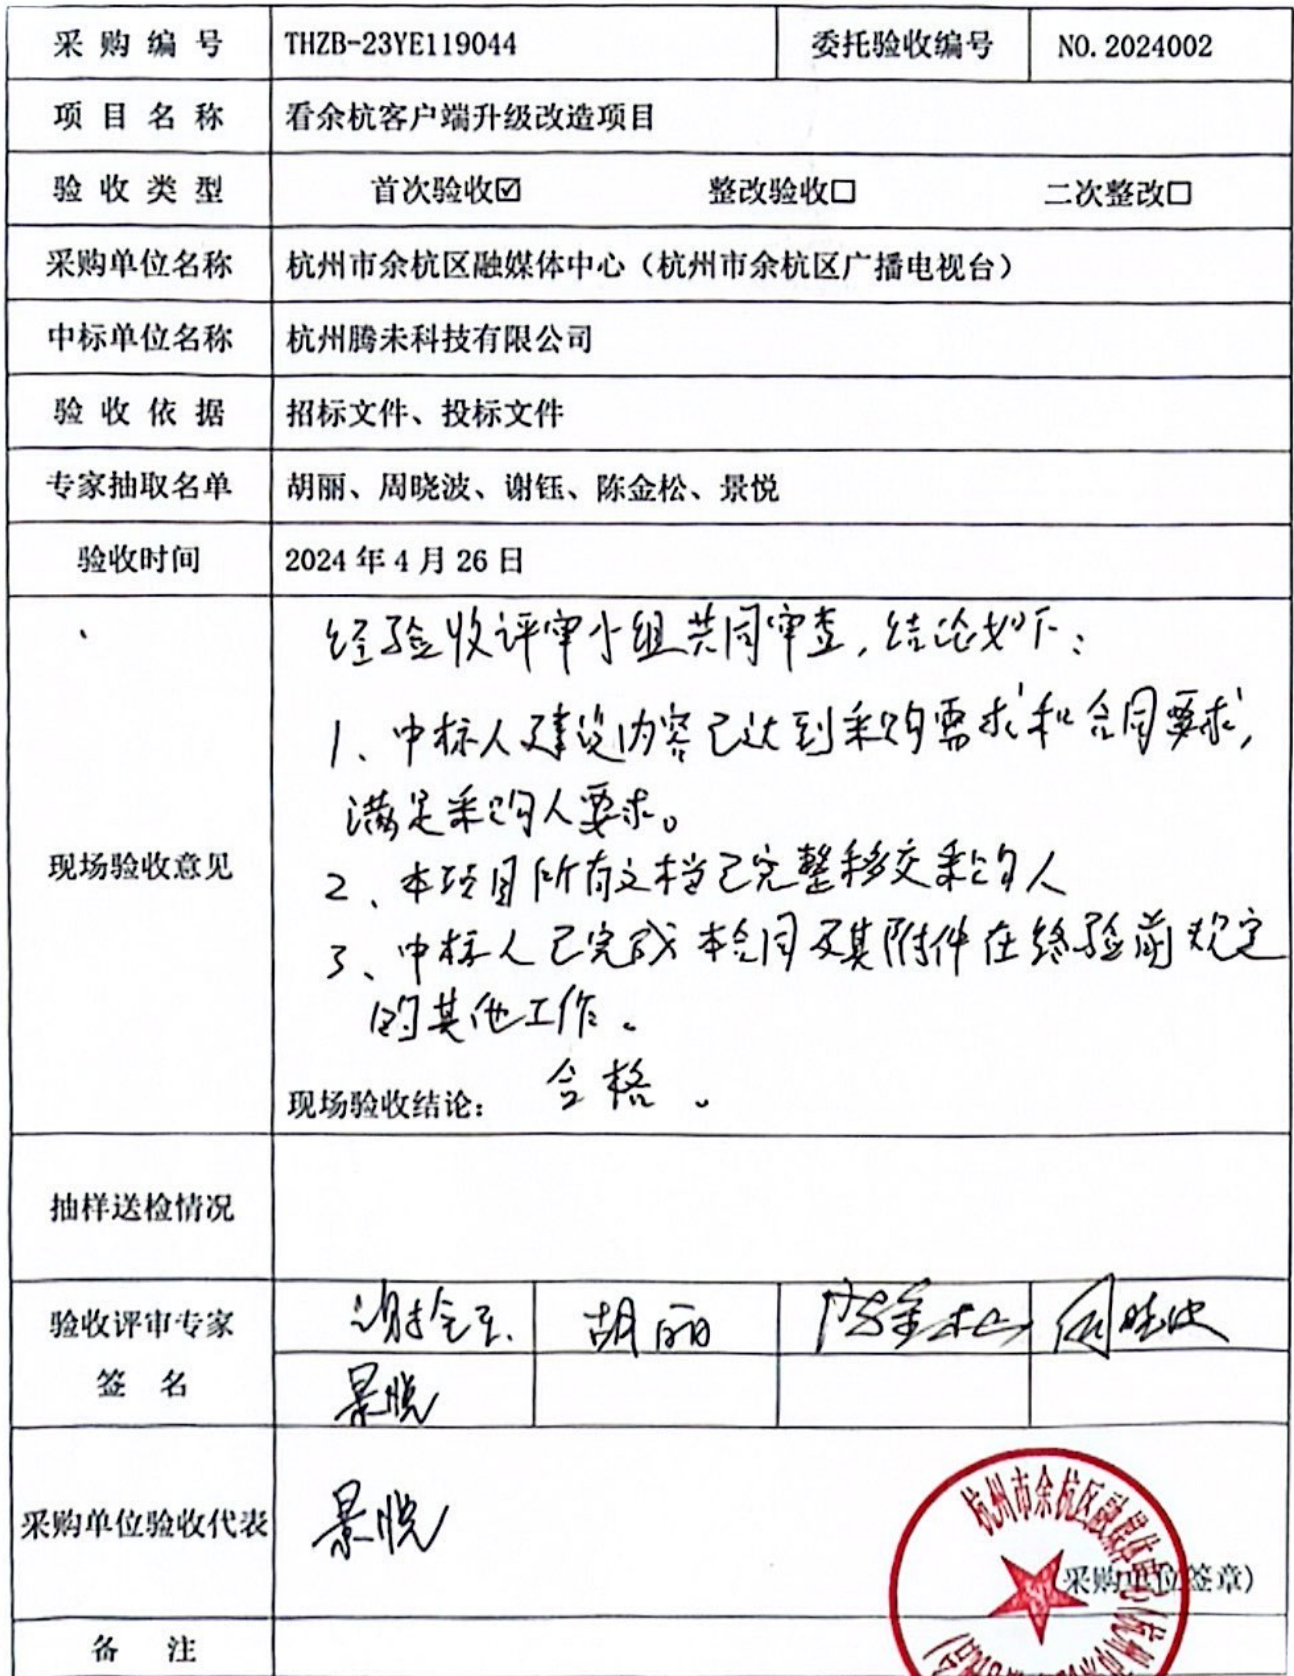 采购编号 THZB-23YE119044 委托验收编号 NO.2024002
项目名称 看余杭客户端升级改造项目
验收类型 首次验收☑ 整改验收☐ 二次整改☐
采购单位名称 杭州市余杭区融媒体中心（杭州市余杭区广播电视台）
中标单位名称 杭州腾未科技有限公司
验收依据 招标文件、投标文件
专家抽取名单 胡丽、周晓波、谢钰、陈金松、景悦
验收时间 2024年4月26日
经验收评审小组共同审查，结论如下：
1、中标人建设内容已达到采购需求和合同要求，
满足采购人要求。
现场验收意见
2、本项目所有文档已完整移交采购人
3、中标人已完成本合同及其附件在终验前规定
的其他工作。
现场验收结论： 合格。
抽样送检情况
验收评审专家
签名
谢钰 胡丽 陈金松 周晓波
景悦
采购单位验收代表 景悦
杭州市余杭区融媒体中心
（采购单位签章）
备注